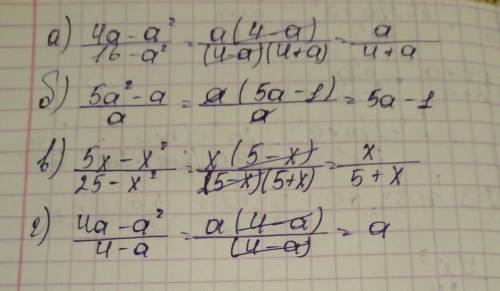 а) (4a - a²)/(16 - a²) = a(4-a)/((4-a)(4+a)) = a/(4+a)
б) (5a² - a)/a = a(5a-1)/a = 5a-1
в) (5x - x²)/(25 - x²) = x(5-x)/((5-x)(5+x)) = x/(5+x)
г) (4a - a²)/(4-a) = a(4-a)/(4-a) = a